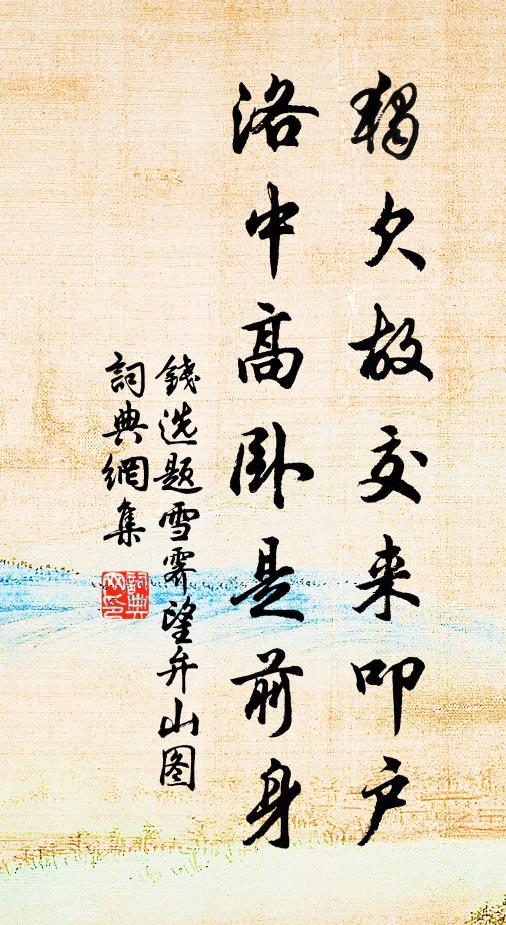 獨欠故交来叩户
洛中高卧是前身
錢选题雪霁望弁山图
詞典網集